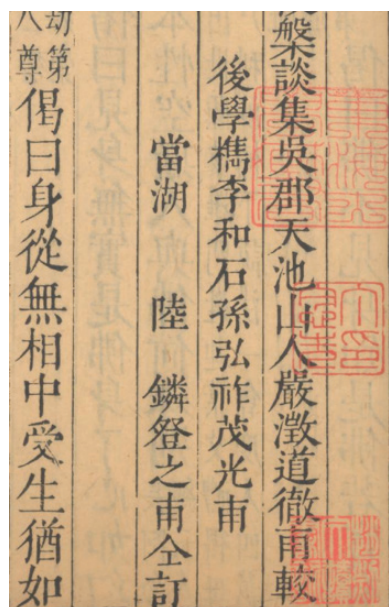 槃談集吳郡天池山人嚴澂道徹甫較
後學檇李和石孫弘祚茂光甫
當湖 陸 鏻登之甫仝訂
劫第
八尊
偈曰身從無相中受生猶如